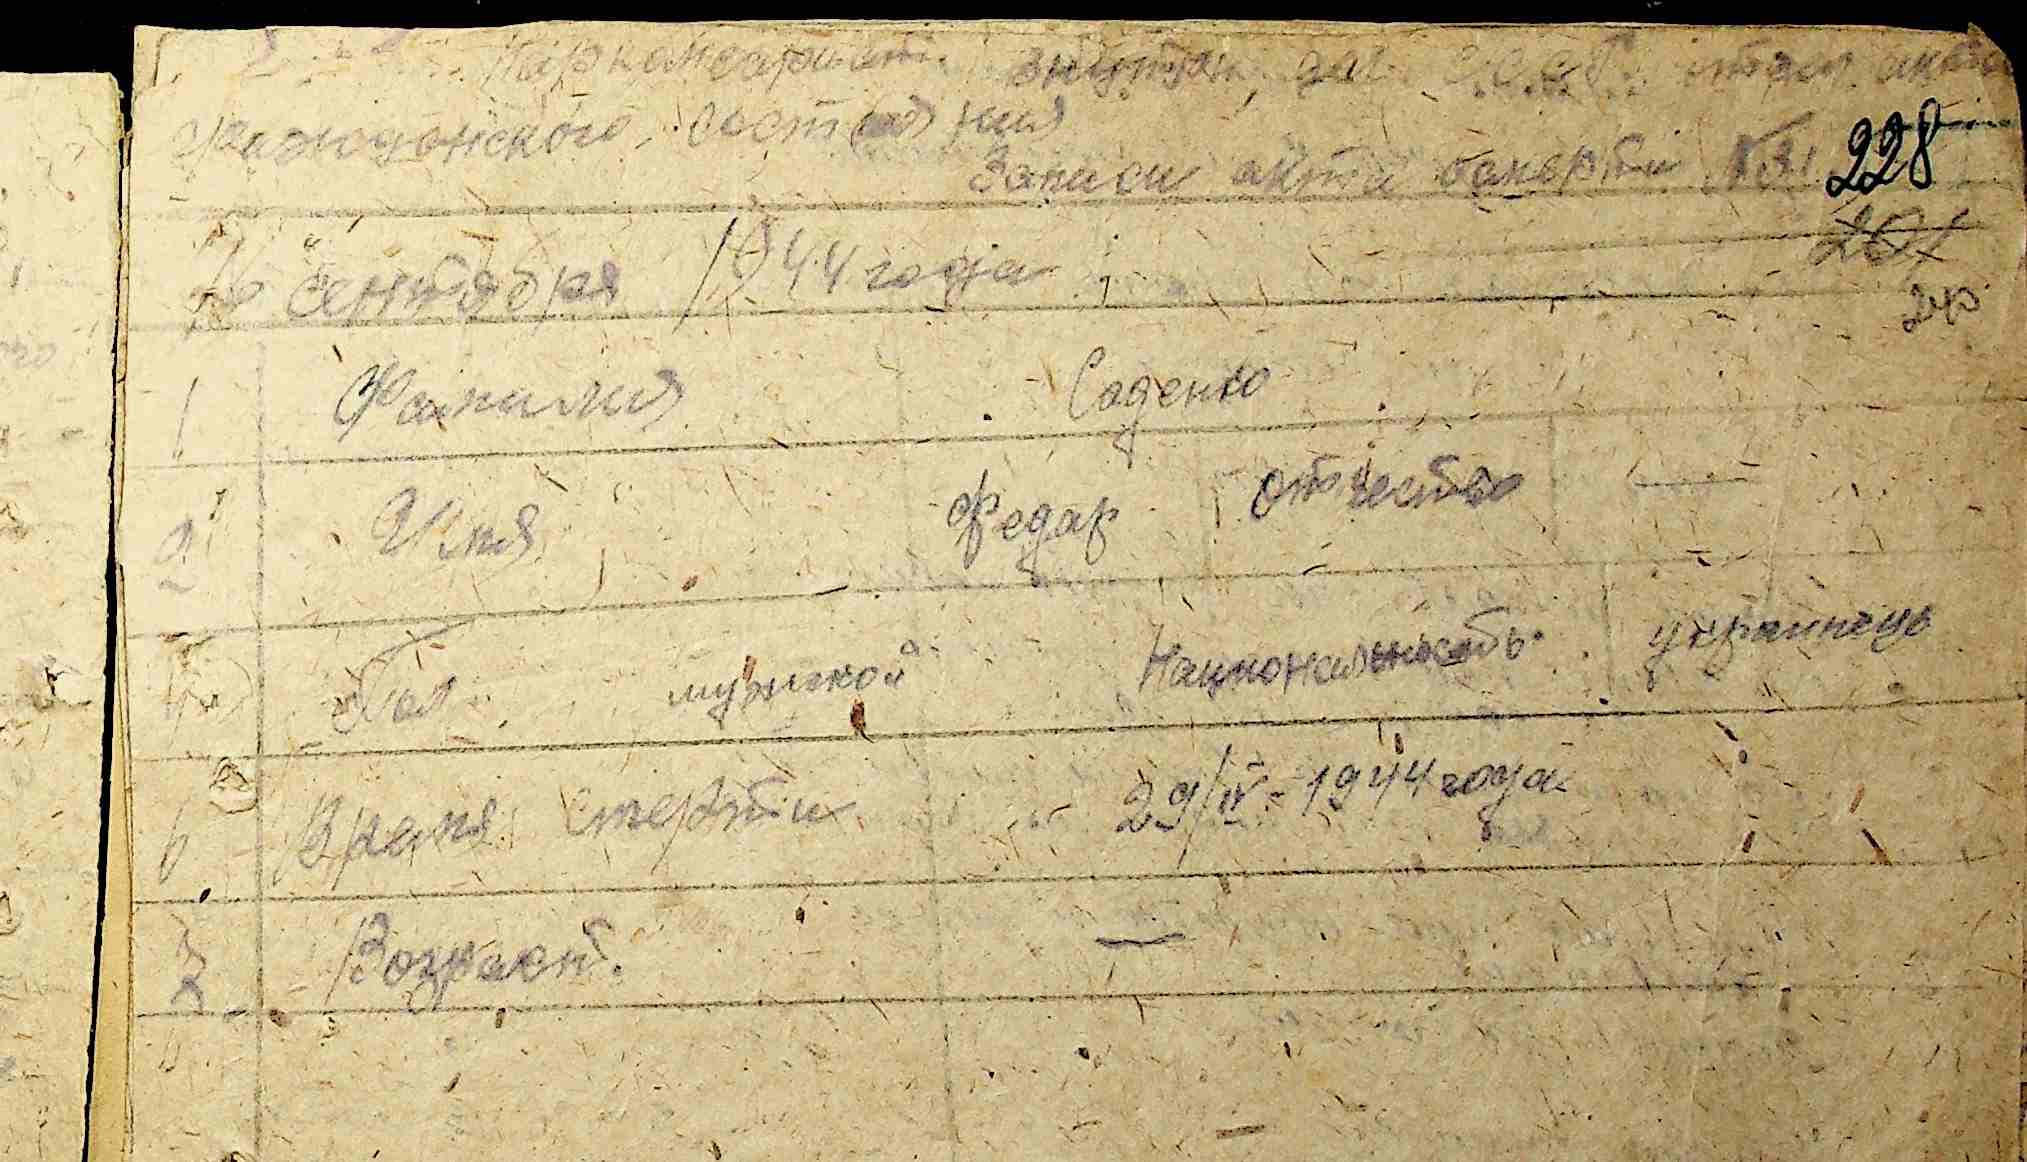 Наркомсариат внутрен дел С.С.С.Р. отдел актов
гражданского состояния
Записи акта осмерти № 228
201
26 сентября 1944 года
1 Фамилия Саденко
2 Имя Федар отчество —
Пол мужской Национальность украинець
6 Время смерти 29/IV-1944 года
7 Возраст. —